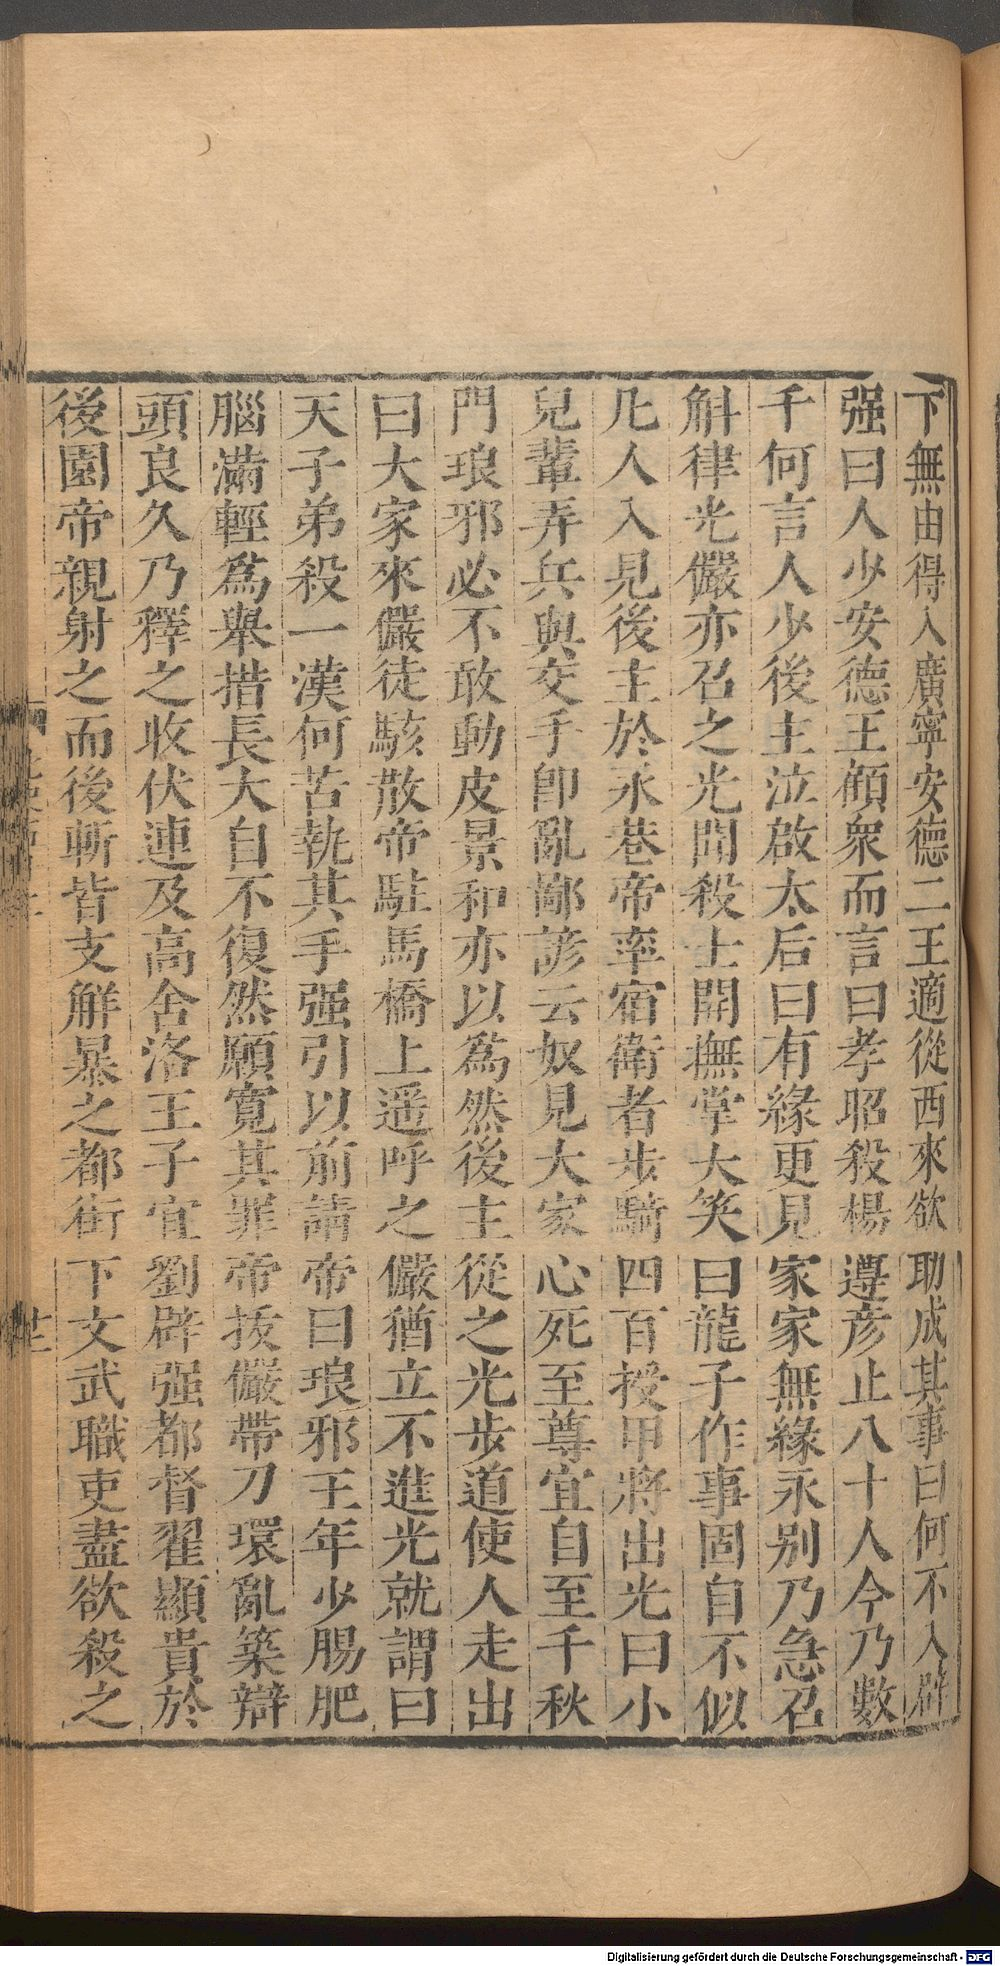 下無由得入廣寧安德二王適從西來欲助成其事曰何不入辟
强曰人少安德王顧衆而言曰孝昭殺楊遵彦止八十人今乃數
千何言人少後主泣啟太后曰有緣更見家家無緣永别乃急召
斛律光儼亦召之光聞殺士開撫掌大笑曰龍子作事固自不似
凡人入見後主於永巷帝率宿衛者步騎四百授甲將出光曰小
兒輩弄兵與交手卽亂鄙諺云奴見大家心死至尊宜自至千秋
門琅邪必不敢動皮景和亦以爲然後主從之光步道使人走出
曰大家來儼徒駭散帝駐馬橋上遥呼之儼猶立不進光就謂曰
天子弟殺一漢何苦執其手强引以前請帝曰琅邪王年少腸肥
腦滿輕爲舉措長大自不復然願寬其罪帝拔儼帶刀環亂築辮
頭良久乃釋之收伏連及高舍洛王子宜劉辟强都督翟顯貴於
後園帝親射之而後斬皆支解暴之都街下文武職吏盡欲殺之
Digitalisierung gefördert durch die Deutsche Forschungsgemeinschaft - DFG